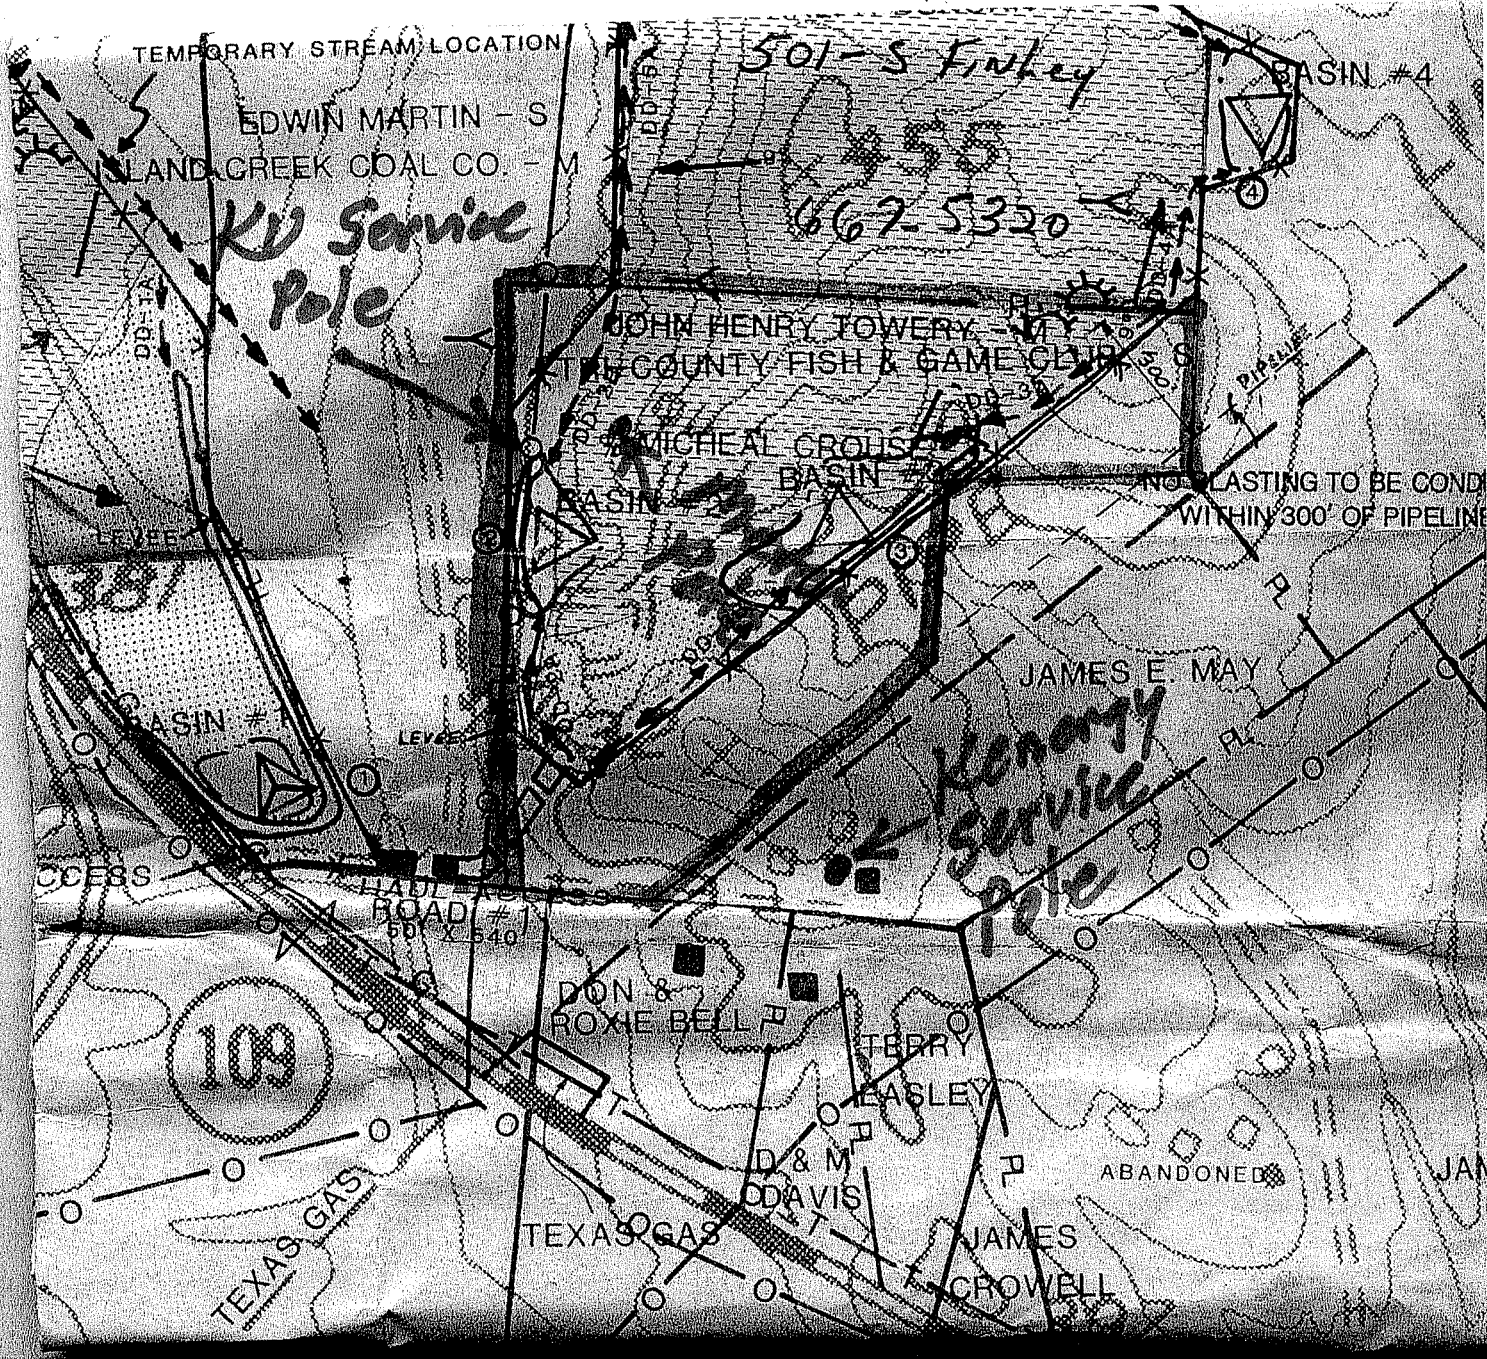 TEMPORARY STREAM LOCATION
501-S Finley
BASIN #4
DD-5
EDWIN MARTIN - S
455
LAND CREEK COAL CO. - M
4
KU Service
Pole
667-5320
DD-4A
DD-1A
JOHN HENRY TOWERY - M
TRI-COUNTY FISH & GAME CLUB - S
300'
PIPELINE
DD-3A
MICHEAL CROUSE
BASIN #3
BASIN
NO BLASTING TO BE COND
WITHIN 300' OF PIPELINE
LEVEE
3
PL
JAMES E. MAY
BASIN #1
LEVEE
PL
Kenergy
Service
Pole
1
CCESS
HAUL ACCESS
ROAD #1
DON &
ROXIE BELL
109
TERRY
EASLEY
D & M
DAVIS
ABANDONED
JAM
TEXAS GAS
TEXAS GAS
JAMES
CROWELL